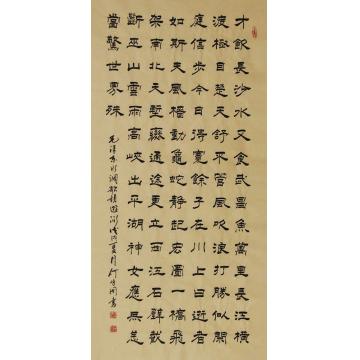 才飲長沙水又食武昌魚萬里長江橫
渡極目楚天舒不管風吹浪打勝似閑
庭信步今日得寬餘子在川上曰逝者
如斯夫風檣動龜蛇靜起宏圖一橋飛
架南北天塹變通途更立西江石壁截
斷巫山雲雨高峽出平湖神女應無恙
當驚世界殊
毛澤東水調歌頭游泳夏月書